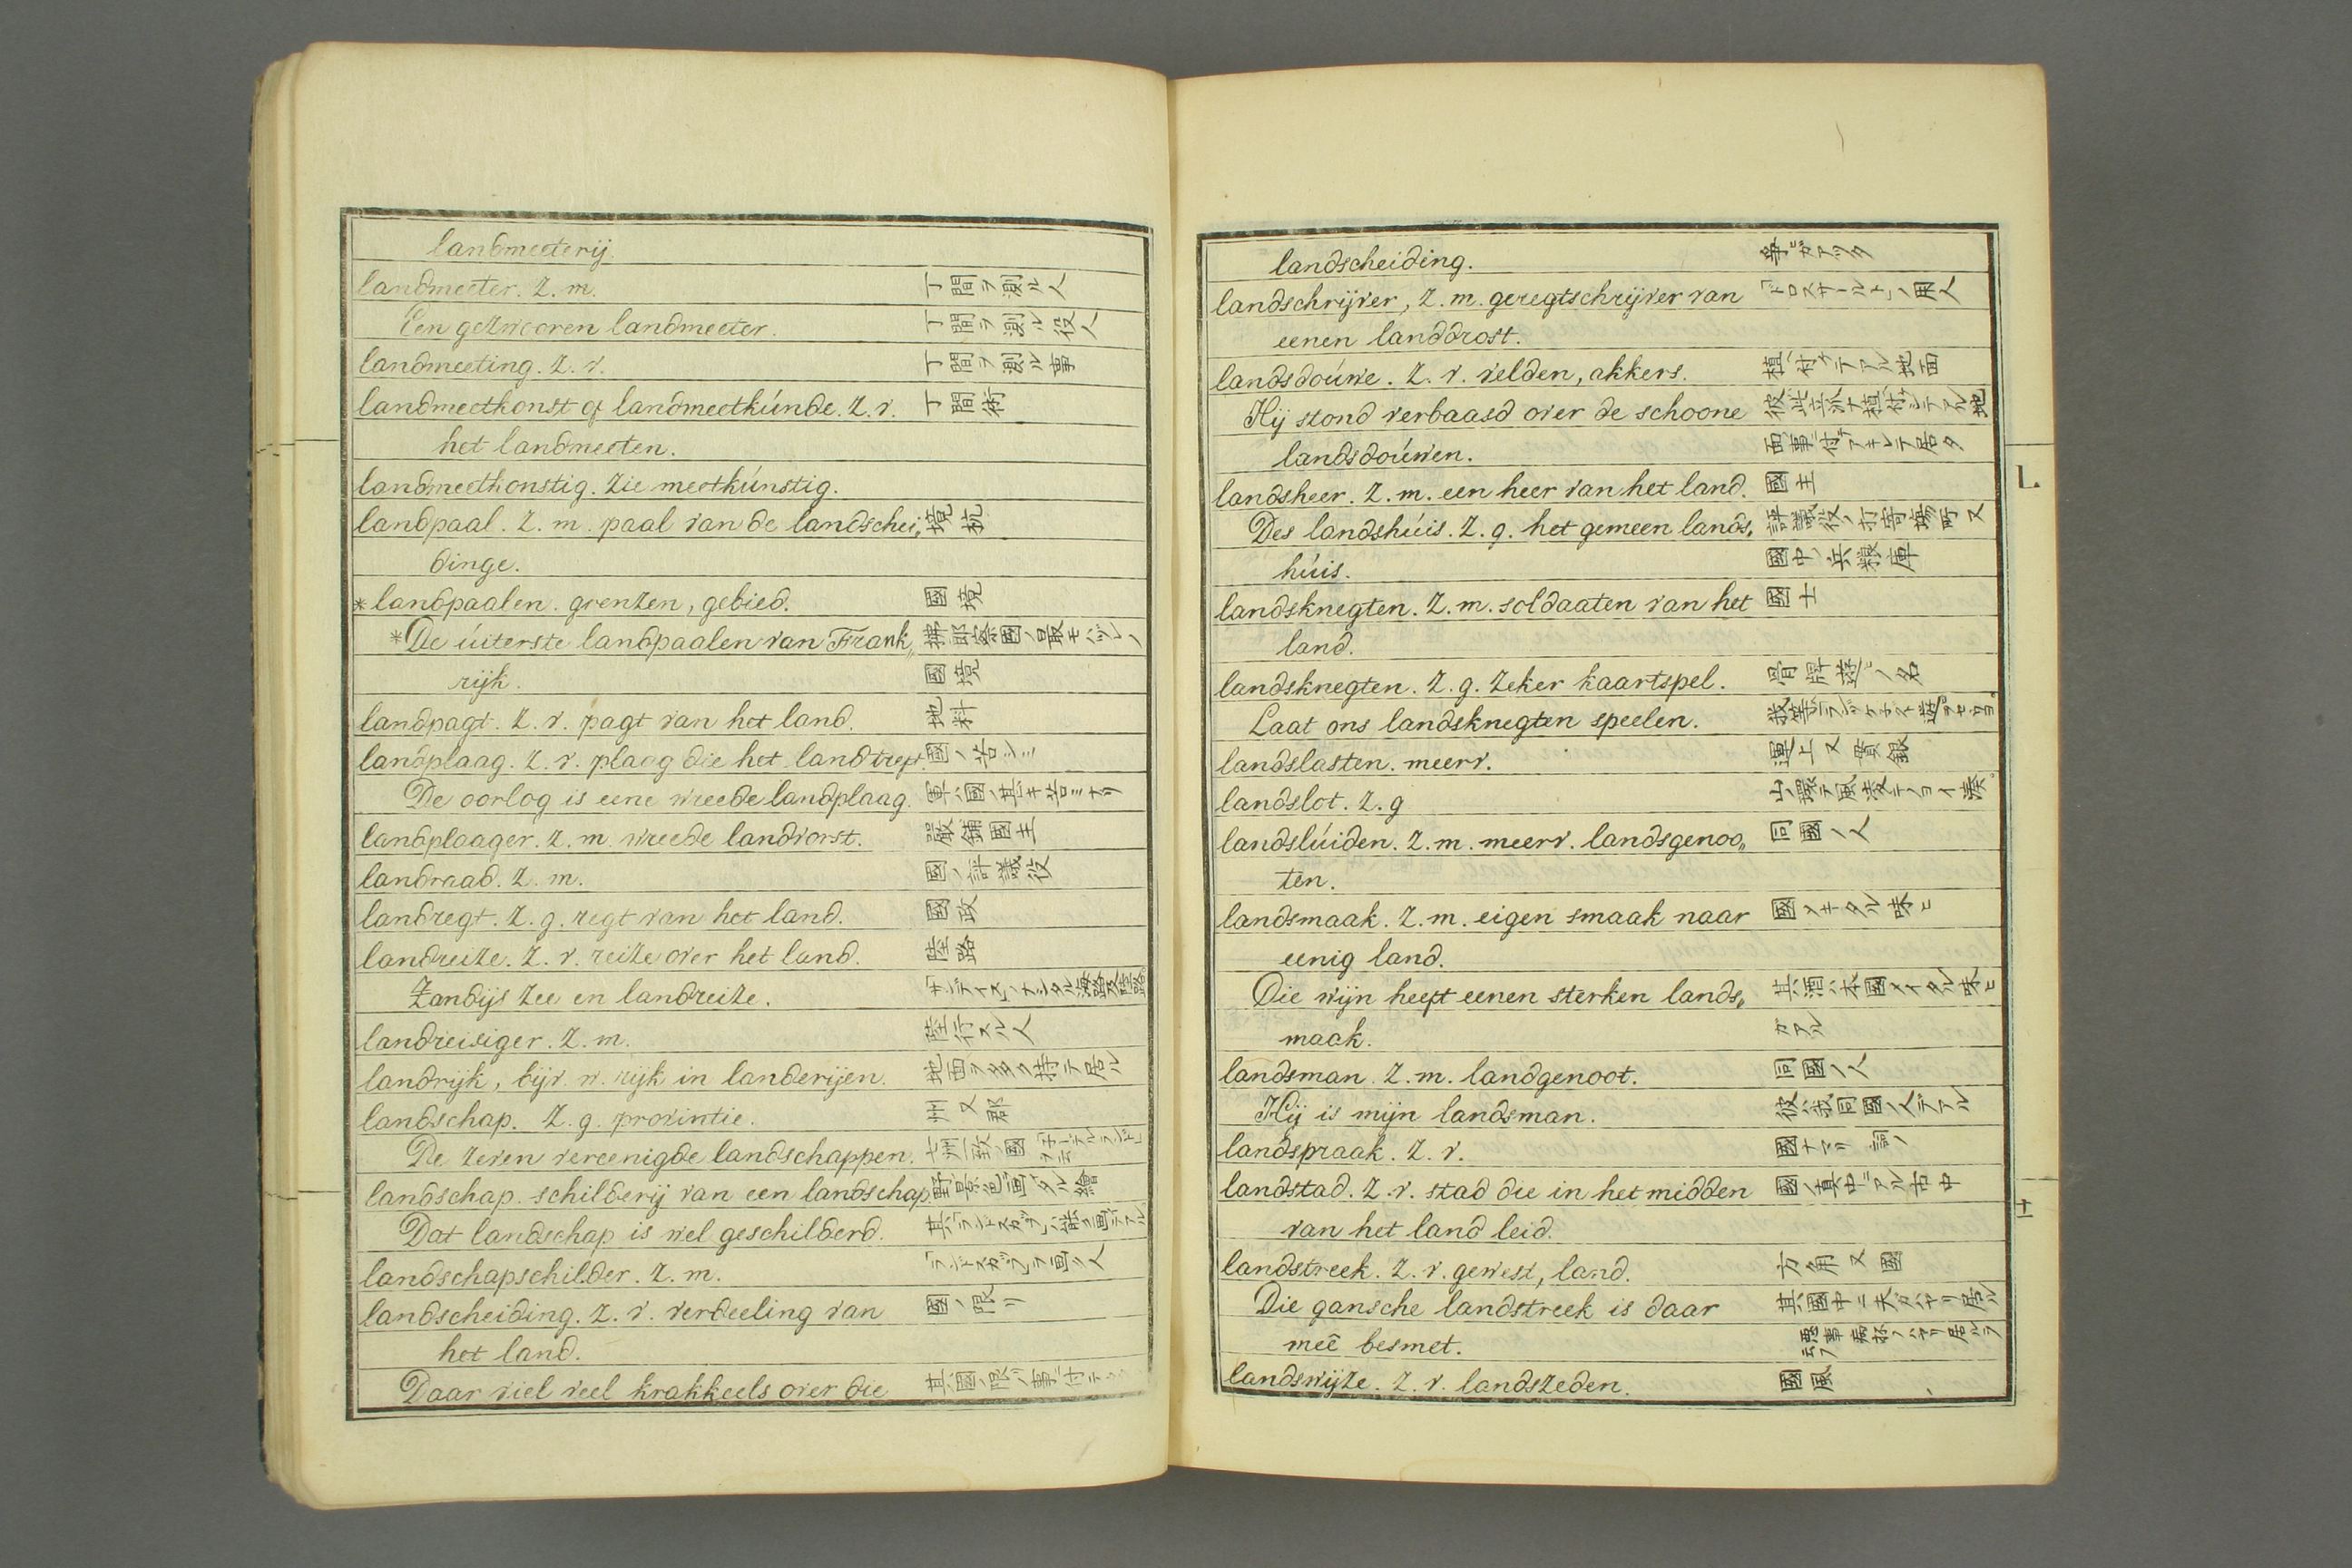 landmeeterij.
landmeeter. Z. m. 丁間ヲ測ル人
Een gezwooren landmeeter. 丁間ヲ測ル役人
landmeeting. Z. v. 丁間ヲ測ル事
landmeetkonst of landmeetkúnde. Z. v. 丁間術
het landmeeten.
landmeetkonstig. Zie meetkúnstig.
landpaal. Z. m. paal van de landschei„ 境杭
dinge.
*landpaalen. grenzen, gebied. 國境
*De úiterste landpaalen van Frank„ 拂郎察國ノ最モハヅレノ
rijk. 國境
landpagt. Z. v. pagt van het land. 地料
landplaag. Z. v. plaag die het land treft. 國ノ苦シミ
De oorlog is eene wreede landplaag. 軍ハ國ノ甚キ苦ミナリ
landplaager. Z. m. wreede landvorst. 嚴錆國主
landraad. Z. m. 國ノ評議役
landregt. Z. g. regt van het land. 國政
landreize. Z. v. reize over het land. 陸路
Zandijs zee en landreize.
landreisiger. Z. m. 陸行スル人
landrijk, bijv. w. rijk in landerijen. 地面ヲ多ク持テ居ル
landschap. Z. g. provintie. 州又郡
De zeven vereenigde landschappen. 七州一致ノ國
landschap. schilderij van een landschap. 野景色画タル繪
Dat landschap is wel geschilderd.
landschapschilder. Z. m. 「ランドスカップ」ヲ画ク人
landscheiding. Z. v. verdeeling van 國ノ限リ
het land.
Daar viel veel krakkeels over die 其國ノ限リノ事ニ付テ
landscheiding. 爭ヒガアツタ
landschrijver, Z. m. geregtschrijver van 「ドロスサールト」ノ用人
eenen landdrost.
landsdoúwe. Z. v. velden, akkers. 植付ケテアル地面
Hij stond verbaasd over de schoone 彼ハ此立派ナ植付シテアル地
landsdoúwen. 面ノ事ニ付アキレテ居タ
landsheer. Z. m. een heer van het land. 國主
Des landshúis. Z. g. het gemeen lands„ 評議役ノ打寄場所又
húis. 國中ノ兵粮庫
landsknegten. Z. m. soldaaten van het 國士
land.
landsknegten. Z. g. zeker kaartspel. 骨牌遊ビノ名
Laat ons landsknegten speelen.
landslasten. meerv. 運上又貢銀
landslot. Z. g
landslúiden. Z. m. meerv. landsgenoo„ 同國ノ人
ten.
landsmaak. Z. m. eigen smaak naar 國メキタル味ヒ
eenig land.
Die wijn heeft eenen sterken lands„ 其酒ハ本國メイタル味ヒ
maak. ガアル
landsman. Z. m. landgenoot. 同國ノ人
Hij is mijn landsman. 彼ハ我同國ノ人デアル
landspraak. Z. v. 國ナマリノ詞
landstad. Z. v. stad die in het midden 國ノ真中ニアル市中
van het land leid.
landstreek. Z. v. gewest, land. 方角又國
Die gansche landstreek is daar 其國中ニ夫ガハヤリ居ル
meê besmet. 悪事病抔ノハヤリ居ルヲ云フ
landswijze. Z. v. landszeden. 國風
L.